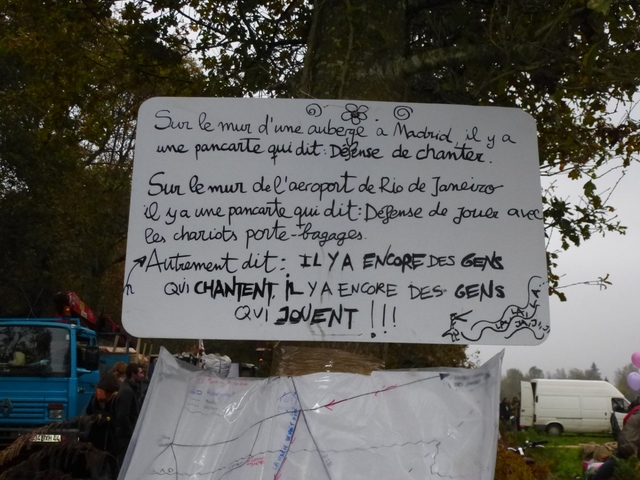 Sur le mur d'une auberge à Madrid, il y a
une pancarte qui dit: Défense de chanter.
Sur le mur de l'aeroport de Rio de Janeiro
il y a une pancarte qui dit: Défense de jouer avec
les chariots porte-bagages.
Autrement dit: IL Y A ENCORE DES GENS
QUI CHANTENT, IL Y A ENCORE DES GENS
QUI JOUENT !!!